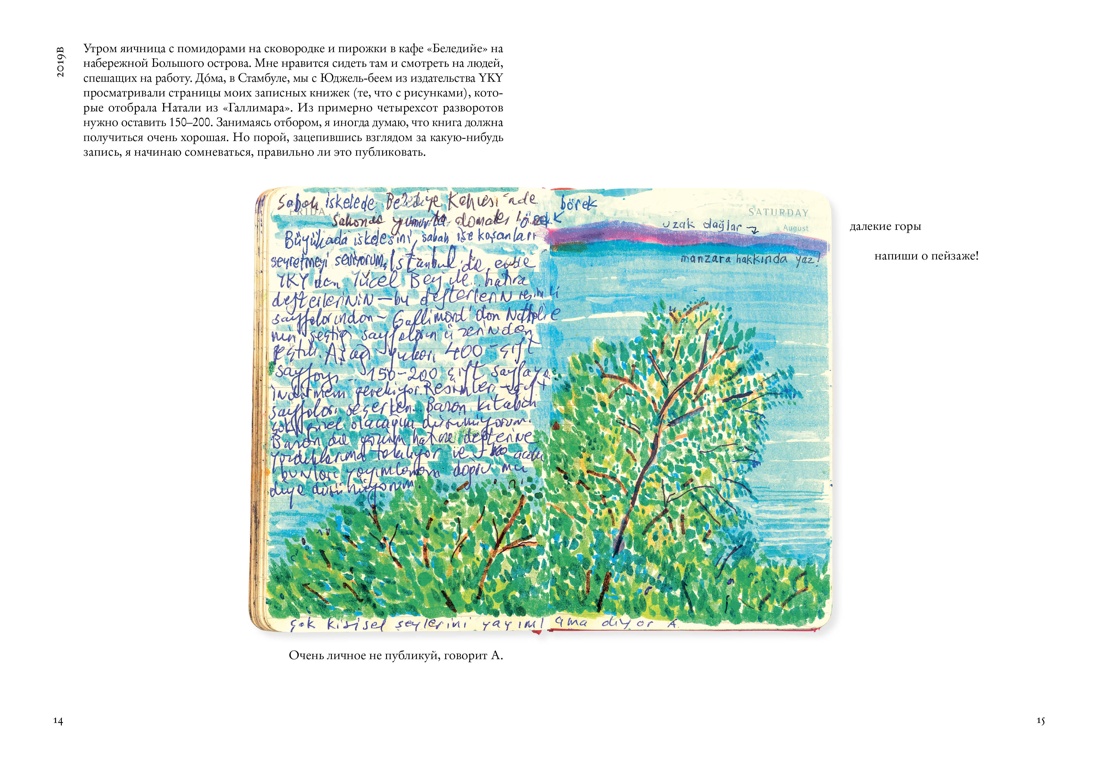 2019B
Утром яичница с помидорами на сковородке и пирожки в кафе «Беледийе» на
набережной Большого острова. Мне нравится сидеть там и смотреть на людей,
спешащих на работу. До́ма, в Стамбуле, мы с Юджель-беем из издательства YKY
просматривали страницы моих записных книжек (те, что с рисунками), кото-
рые отобрала Натали из «Галлимара». Из примерно четырехсот разворотов
нужно оставить 150–200. Занимаясь отбором, я иногда думаю, что книга должна
получиться очень хорошая. Но порой, зацепившись взглядом за какую-нибудь
запись, я начинаю сомневаться, правильно ли это публиковать.
Sabah iskelede Belediye Kahvesi'nde börek
Sahanda yumurta domates börek
Büyükada iskelesini, sabah işe koşanları
seyretmeyi seviyorum. İstanbul'da, evde
YKY'den Yücel Bey ile hatıra
defterlerinin – bu defterlerin resimli
sayfalarından – Gallimard'dan Nathalie
nin seçtiği sayfaların üzerinden
geçtik. Aşağı yukarı 400 çift
sayfayı 150-200 çift sayfaya
indirmem gerekiyor. Resimler çift
sayfaları seçerken. Bazan kitabın
çok güzel olacağını düşünüyorum
Bazan da gözüm hatıra defterine
yazdıklarıma takılıyor ve
bunları yayımlamam doğru mu
diye düşünüyorum
SATURDAY
August
uzak dağlar
manzara hakkında yaz!
çok kişisel şeylerini yayımlama diyor A.
далекие горы
напиши о пейзаже!
Очень личное не публикуй, говорит А.
14
15